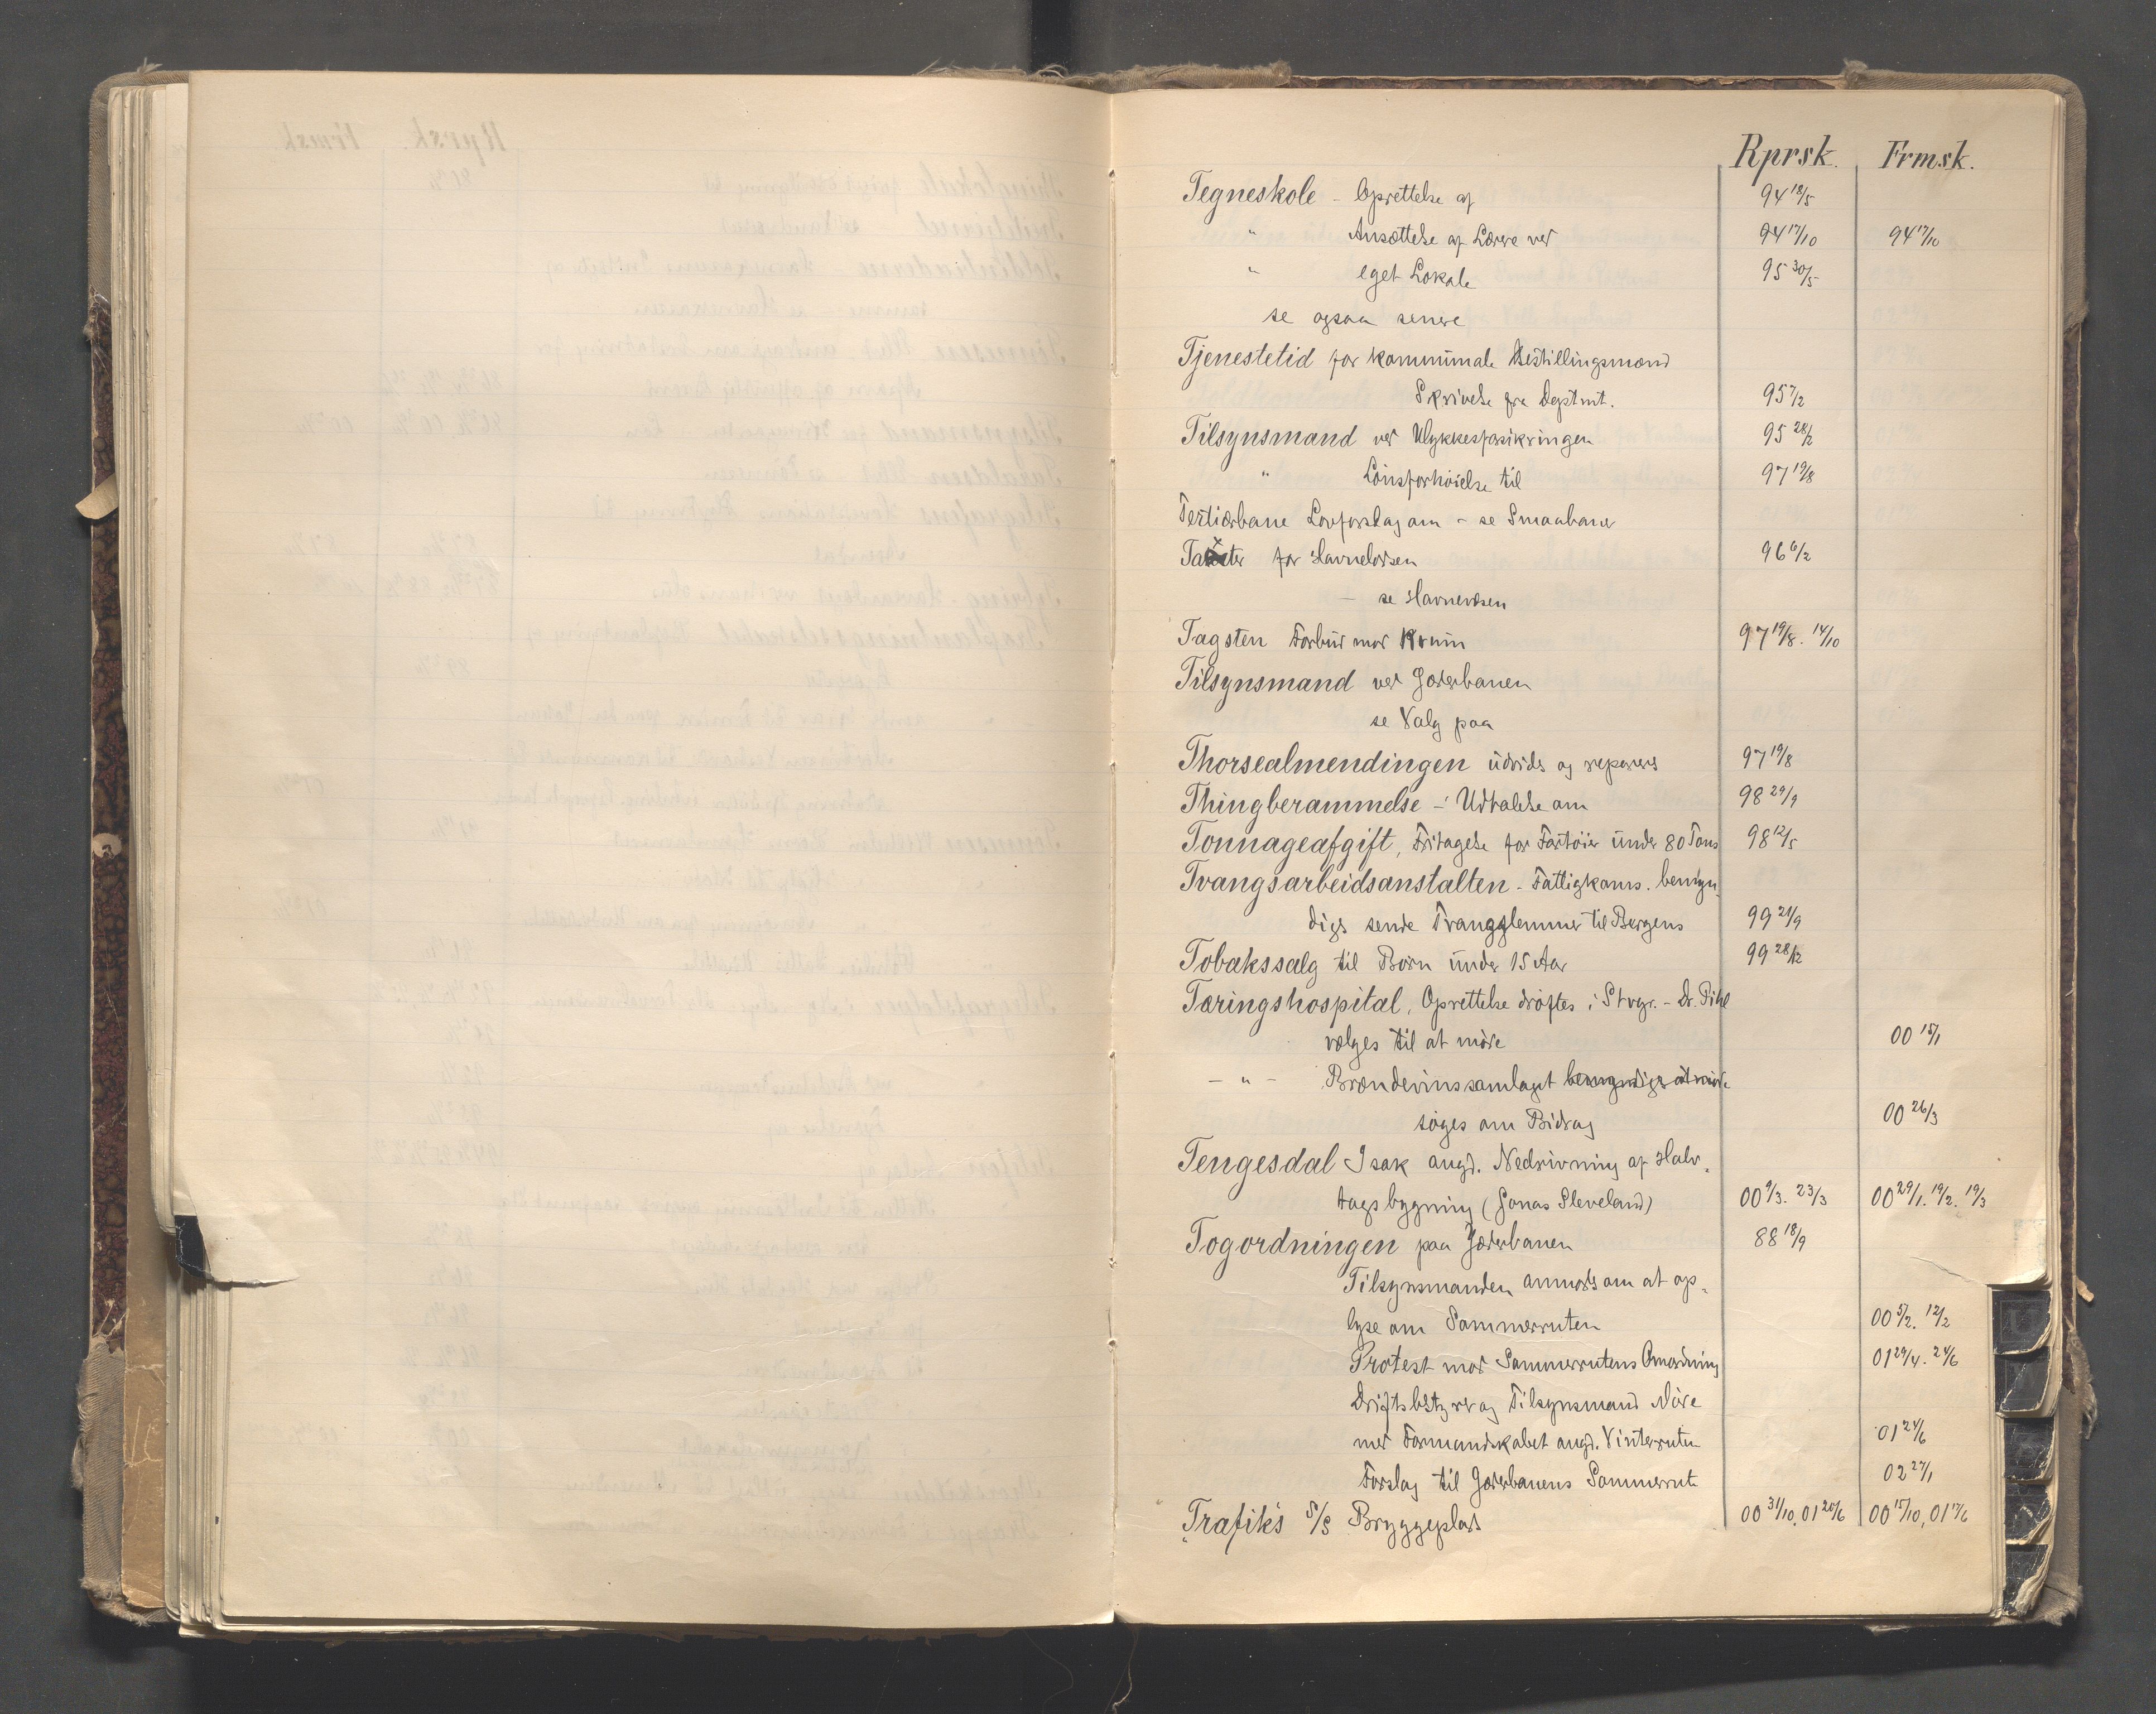 Rprsk. Frmsk.
Tegneskole - Oprettelse af 94 18/5
" Ansættelse af Lærere ved 94 17/10 94 17/10
" eget Lokale 95 30/5
se ogsaa senere
Tjenestetid for kommunale Bestillingsmænd
Skrivelse fra Deptmt. 95 7/2
Tilsynsmand ved Ulykkesforsikringen 95 28/2
" Lönsforhöielse til 97 19/8
Tertiærbane Lovforslag om - se Smaabaner
Taxter for Havnelodsen 96 6/2
- se Havnevæsen
Tagsten Forbud mod 97 19/8. 14/10
Tilsynsmand ved Jæderbanen
se Valg paa
Thorsealmendingen udvides og repareres 97 19/8
Thingberammelse - Udtalelse om 98 29/9
Tonnageafgift, Fritagelse for Fartöier under 80 Tons 98 12/5
Tvangsarbeidsanstalten - Fattigkoms. bemyn-
diges sende Tvangslemmer til Bergens 99 21/9
Tobakssalg til Börn under 15 Aar 99 28/12
Tæringshospital, Oprettelse dröftes i Stvgr. - Dr. Pihl
vælges til at möde 00 15/1
- " - Brændevinssamlaget bemyndiges at möde
söges om Bidrag 00 26/3
Tengesdal Isak angd. Nedrivning af Halv-
tagsbygning (Jonas Sleveland) 00 9/3. 23/3 00 29/1. 19/2. 19/3
Togordningen paa Jæderbanen 88 18/9
Tilsynsmanden anmodes om at op-
lyse om Sommerruten 00 5/2. 12/2
Protest mod Sommerrutens Omordning 01 29/4. 24/6
Driftsbestyrer og Tilsynsmand Möde
med Formandskabet angd. Vinterruten 01 24/6
Forslag til Jæderbanens Sommerrute 02 27/1
Trafik's S/S Bryggeplads 00 31/10, 01 20/6 00 15/10, 01 17/6